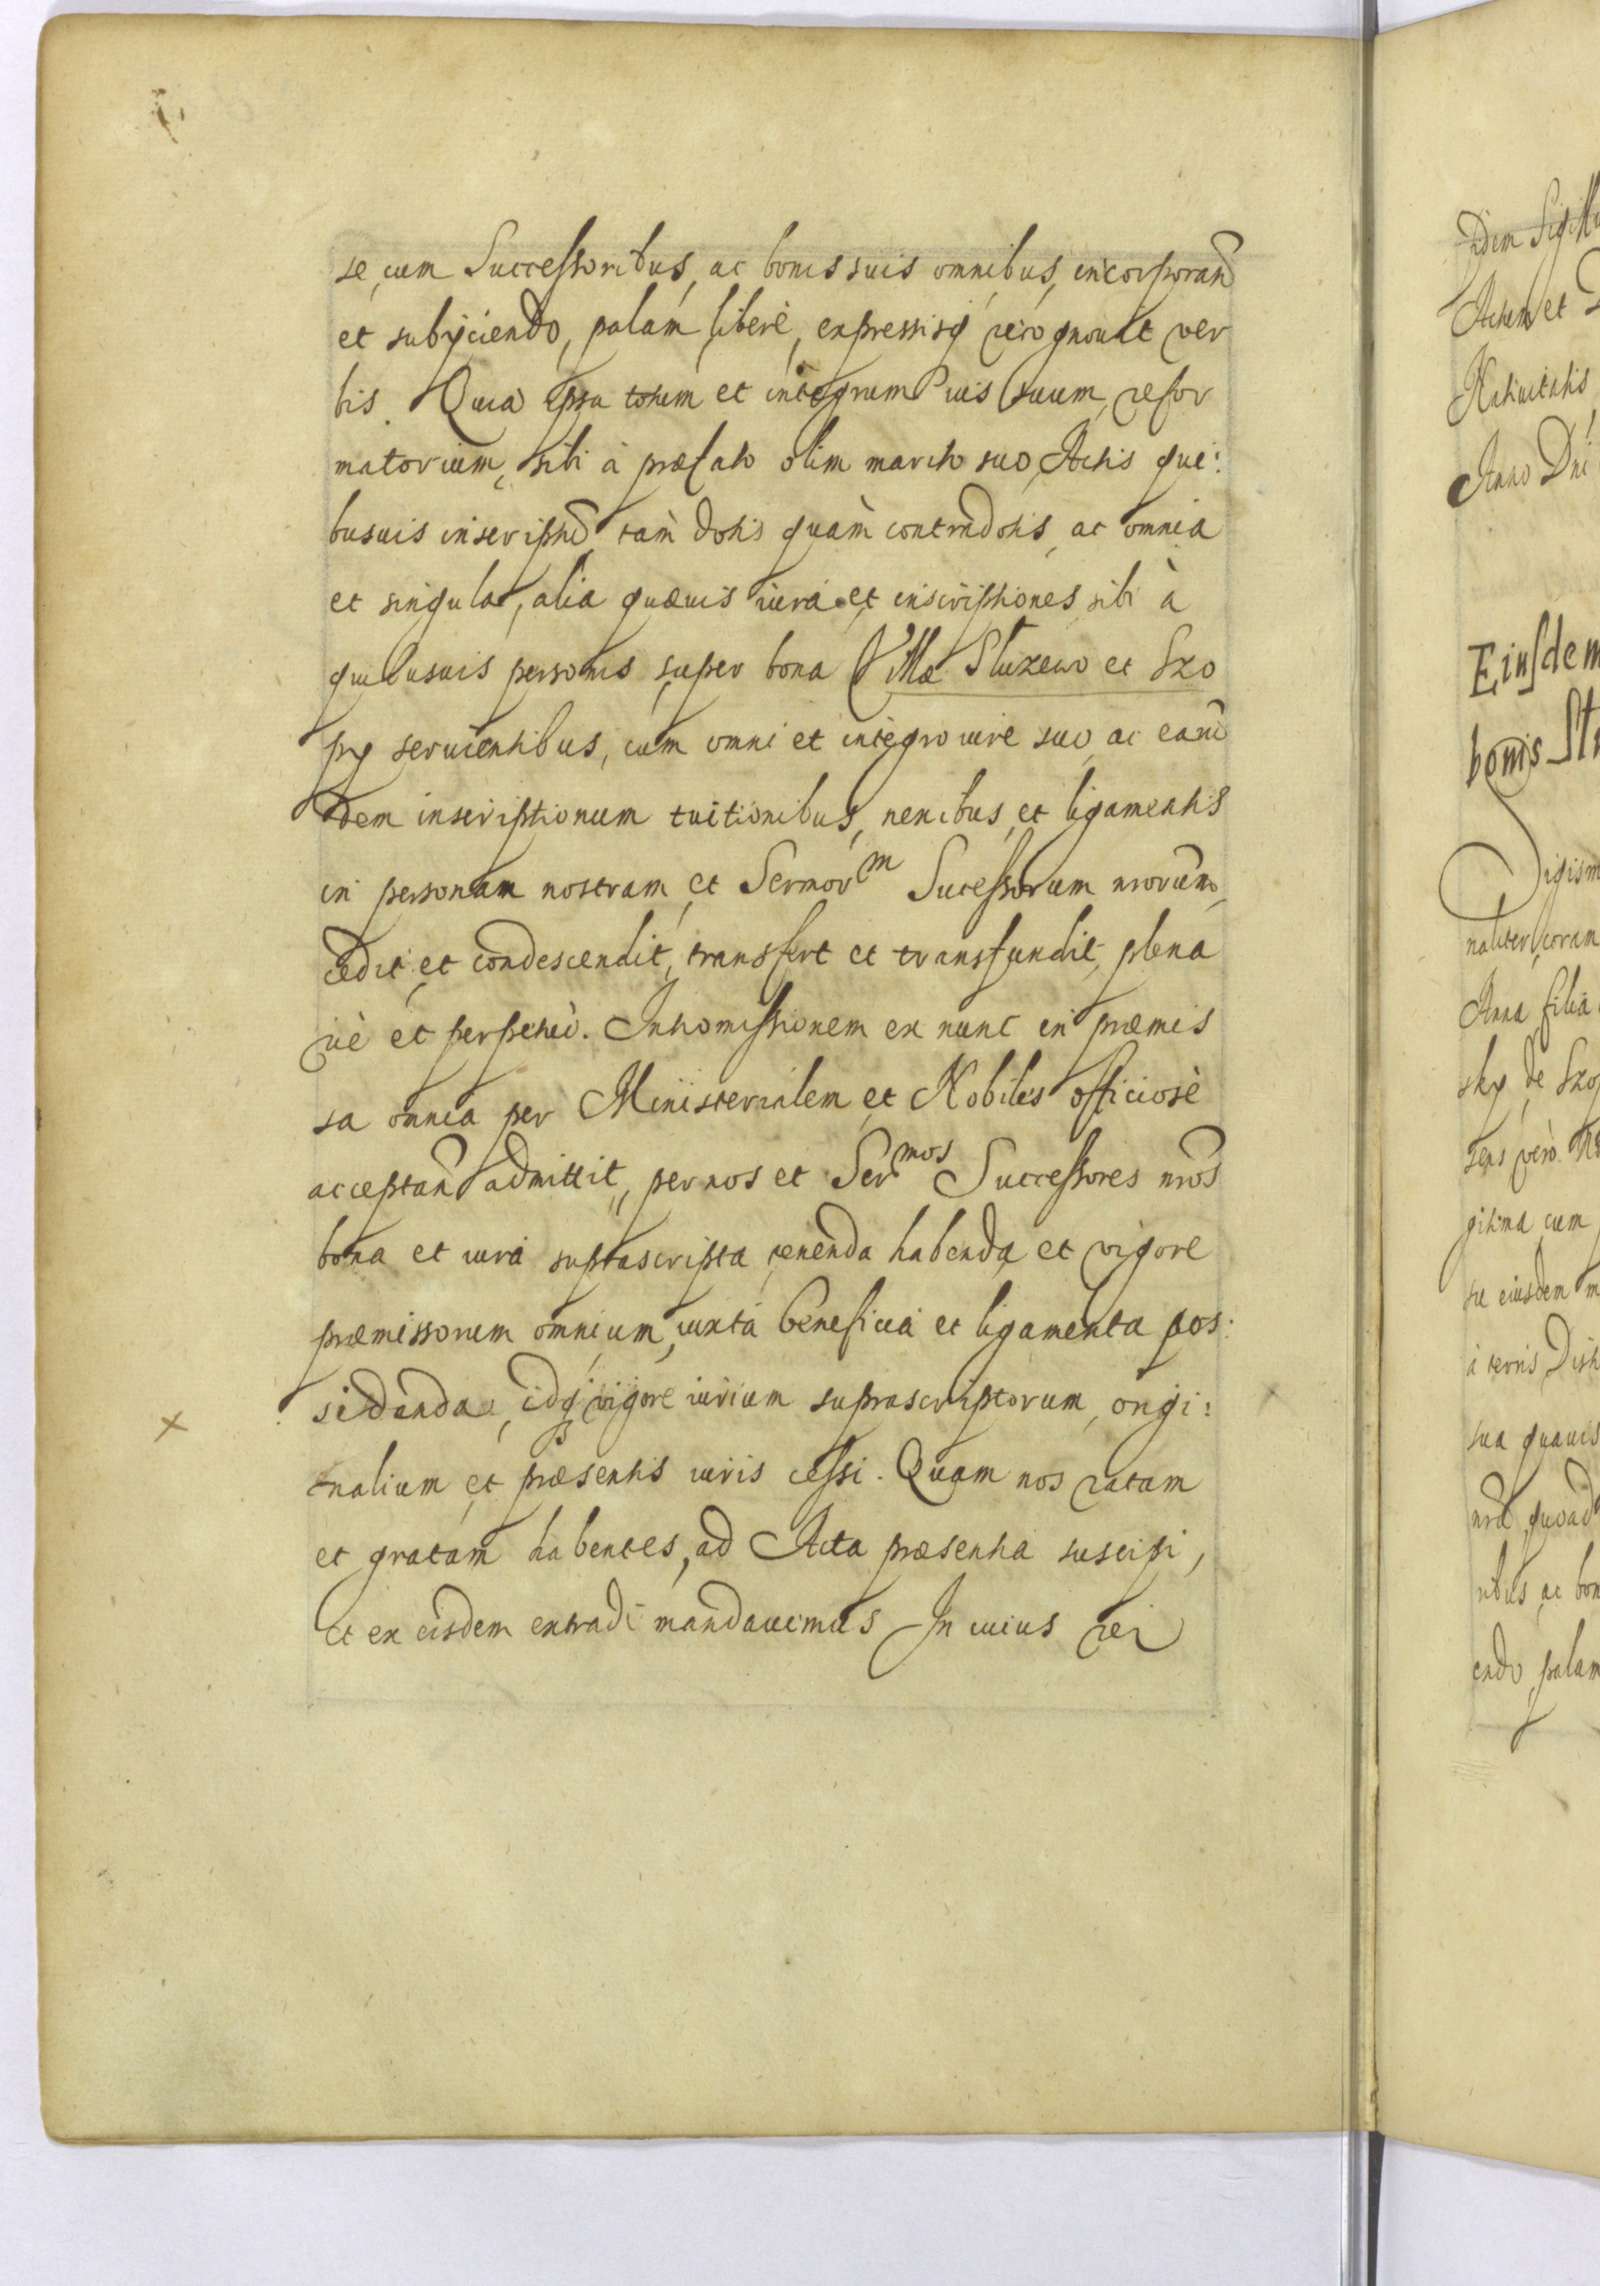 se, cum Successoribus, ac bonis suis omnibus, incorporan͂
et subijciendo, palam, liberè, expressisq́ recognouit ver
bis. Quia ipsa totum et integrum ius suum, refor
matorium, sibi à præfato olim marito suo, Actis qui:
busuis inscriptū, tàm dotis quàm contradotis, ac omnia
et singula, alia quæuis iura et inscriptiones, sibi à
quibusuis personis super bona Villæ Sluzewo et Szo
py seruientibus, cum omni et integro iure suo, ac earū
dem inscriptionum tuitionibus, nexibus, et ligamentis
in personam nostram, et Sermor^m Sucessorum nrorum,
cedit, et condescendit, transfert et transfundit, plena
riè et perpetuò. Intromissionem ex nunc in præmis
sa omnia per Ministerialem et Nobiles officiosè
acceptan͂ admittit, per nos et Ser^mos Successores nros
bona et iura suprascripta tenenda habenda et vigore
præmissorum omnium, iuxta beneficia et ligamenta pos:
sidenda, idq́ vigore iurium suprascriptorum, origi:
nalium et præsentis iuris cessi. Quam nos ratam
et gratam habentes, ad Acta præsentia suscipi,
et ex eisdem extradi mandauimus In cuius rei
idem Sigillu
Actum et
Natiuitatis
Anno Dni
Eiusdem
bonis Slu
Sigism
naliter coram
Anna filia
sky de Szop
sens verò
gitima cum
su eiusdem m
à terris Distr
sua quauis
nrā quoad
ribus ac bon
endo, palam